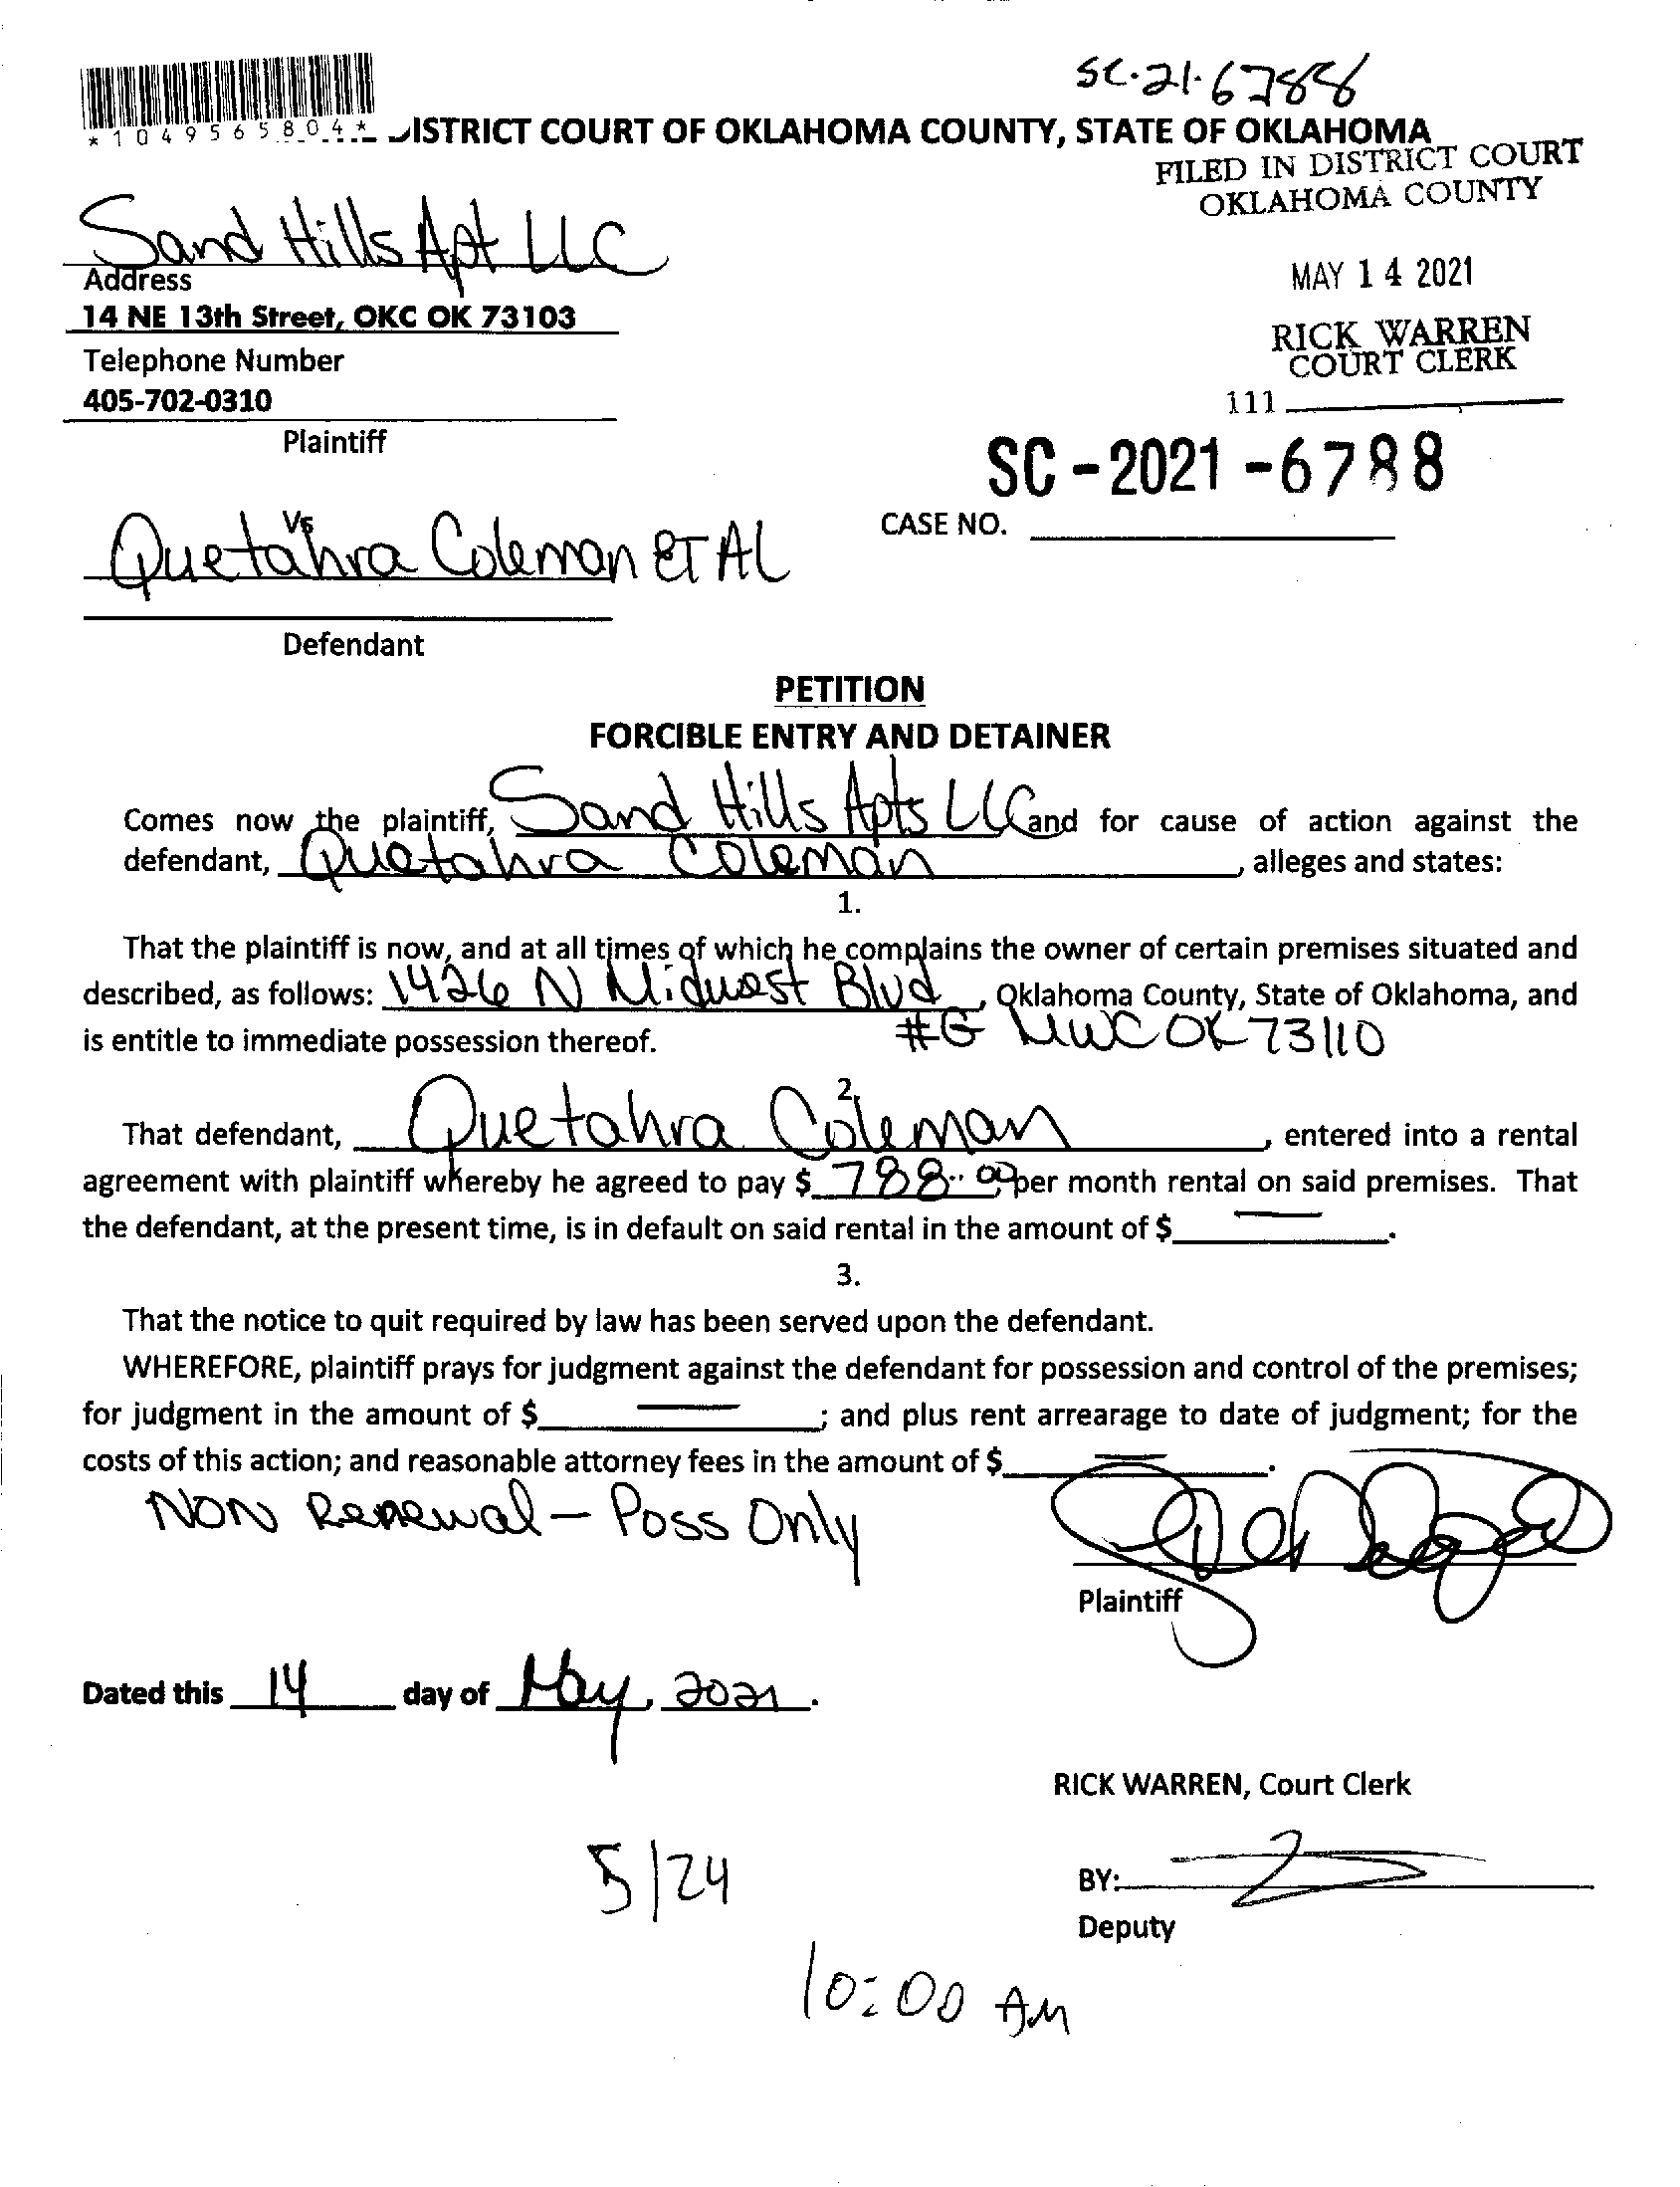 SC-21-6788
*1049565804*
DISTRICT COURT OF OKLAHOMA COUNTY, STATE OF OKLAHOMA
FILED IN DISTRICT COURT
OKLAHOMA COUNTY
Sand Hills Apt LLC
Address
14 NE 13th Street, OKC OK 73103
MAY 14 2021
RICK WARREN
COURT CLERK
Telephone Number
405-702-0310
111
Plaintiff
SC-2021-6788
CASE NO.
Vs
Quetahra Coleman ET AL
Defendant
PETITION
FORCIBLE ENTRY AND DETAINER
Comes now the plaintiff, Sand Hills Apts LLC and for cause of action against the
defendant, Quetahra Coleman, alleges and states:
1.
That the plaintiff is now, and at all times of which he complains the owner of certain premises situated and
described, as follows: 1426 N Midwest Blvd, Oklahoma County, State of Oklahoma, and
#G MWC OK 73110
is entitle to immediate possession thereof.
2.
That defendant, Quetahra Coleman, entered into a rental
agreement with plaintiff whereby he agreed to pay $ 788.00 per month rental on said premises. That
the defendant, at the present time, is in default on said rental in the amount of $ —.
3.
That the notice to quit required by law has been served upon the defendant.
WHEREFORE, plaintiff prays for judgment against the defendant for possession and control of the premises;
for judgment in the amount of $ —; and plus rent arrearage to date of judgment; for the
costs of this action; and reasonable attorney fees in the amount of $ —.
NON Renewal - Poss Only
Plaintiff
Dated this 14 day of May, 2021.
RICK WARREN, Court Clerk
5/24
BY:
Deputy
10:00 AM